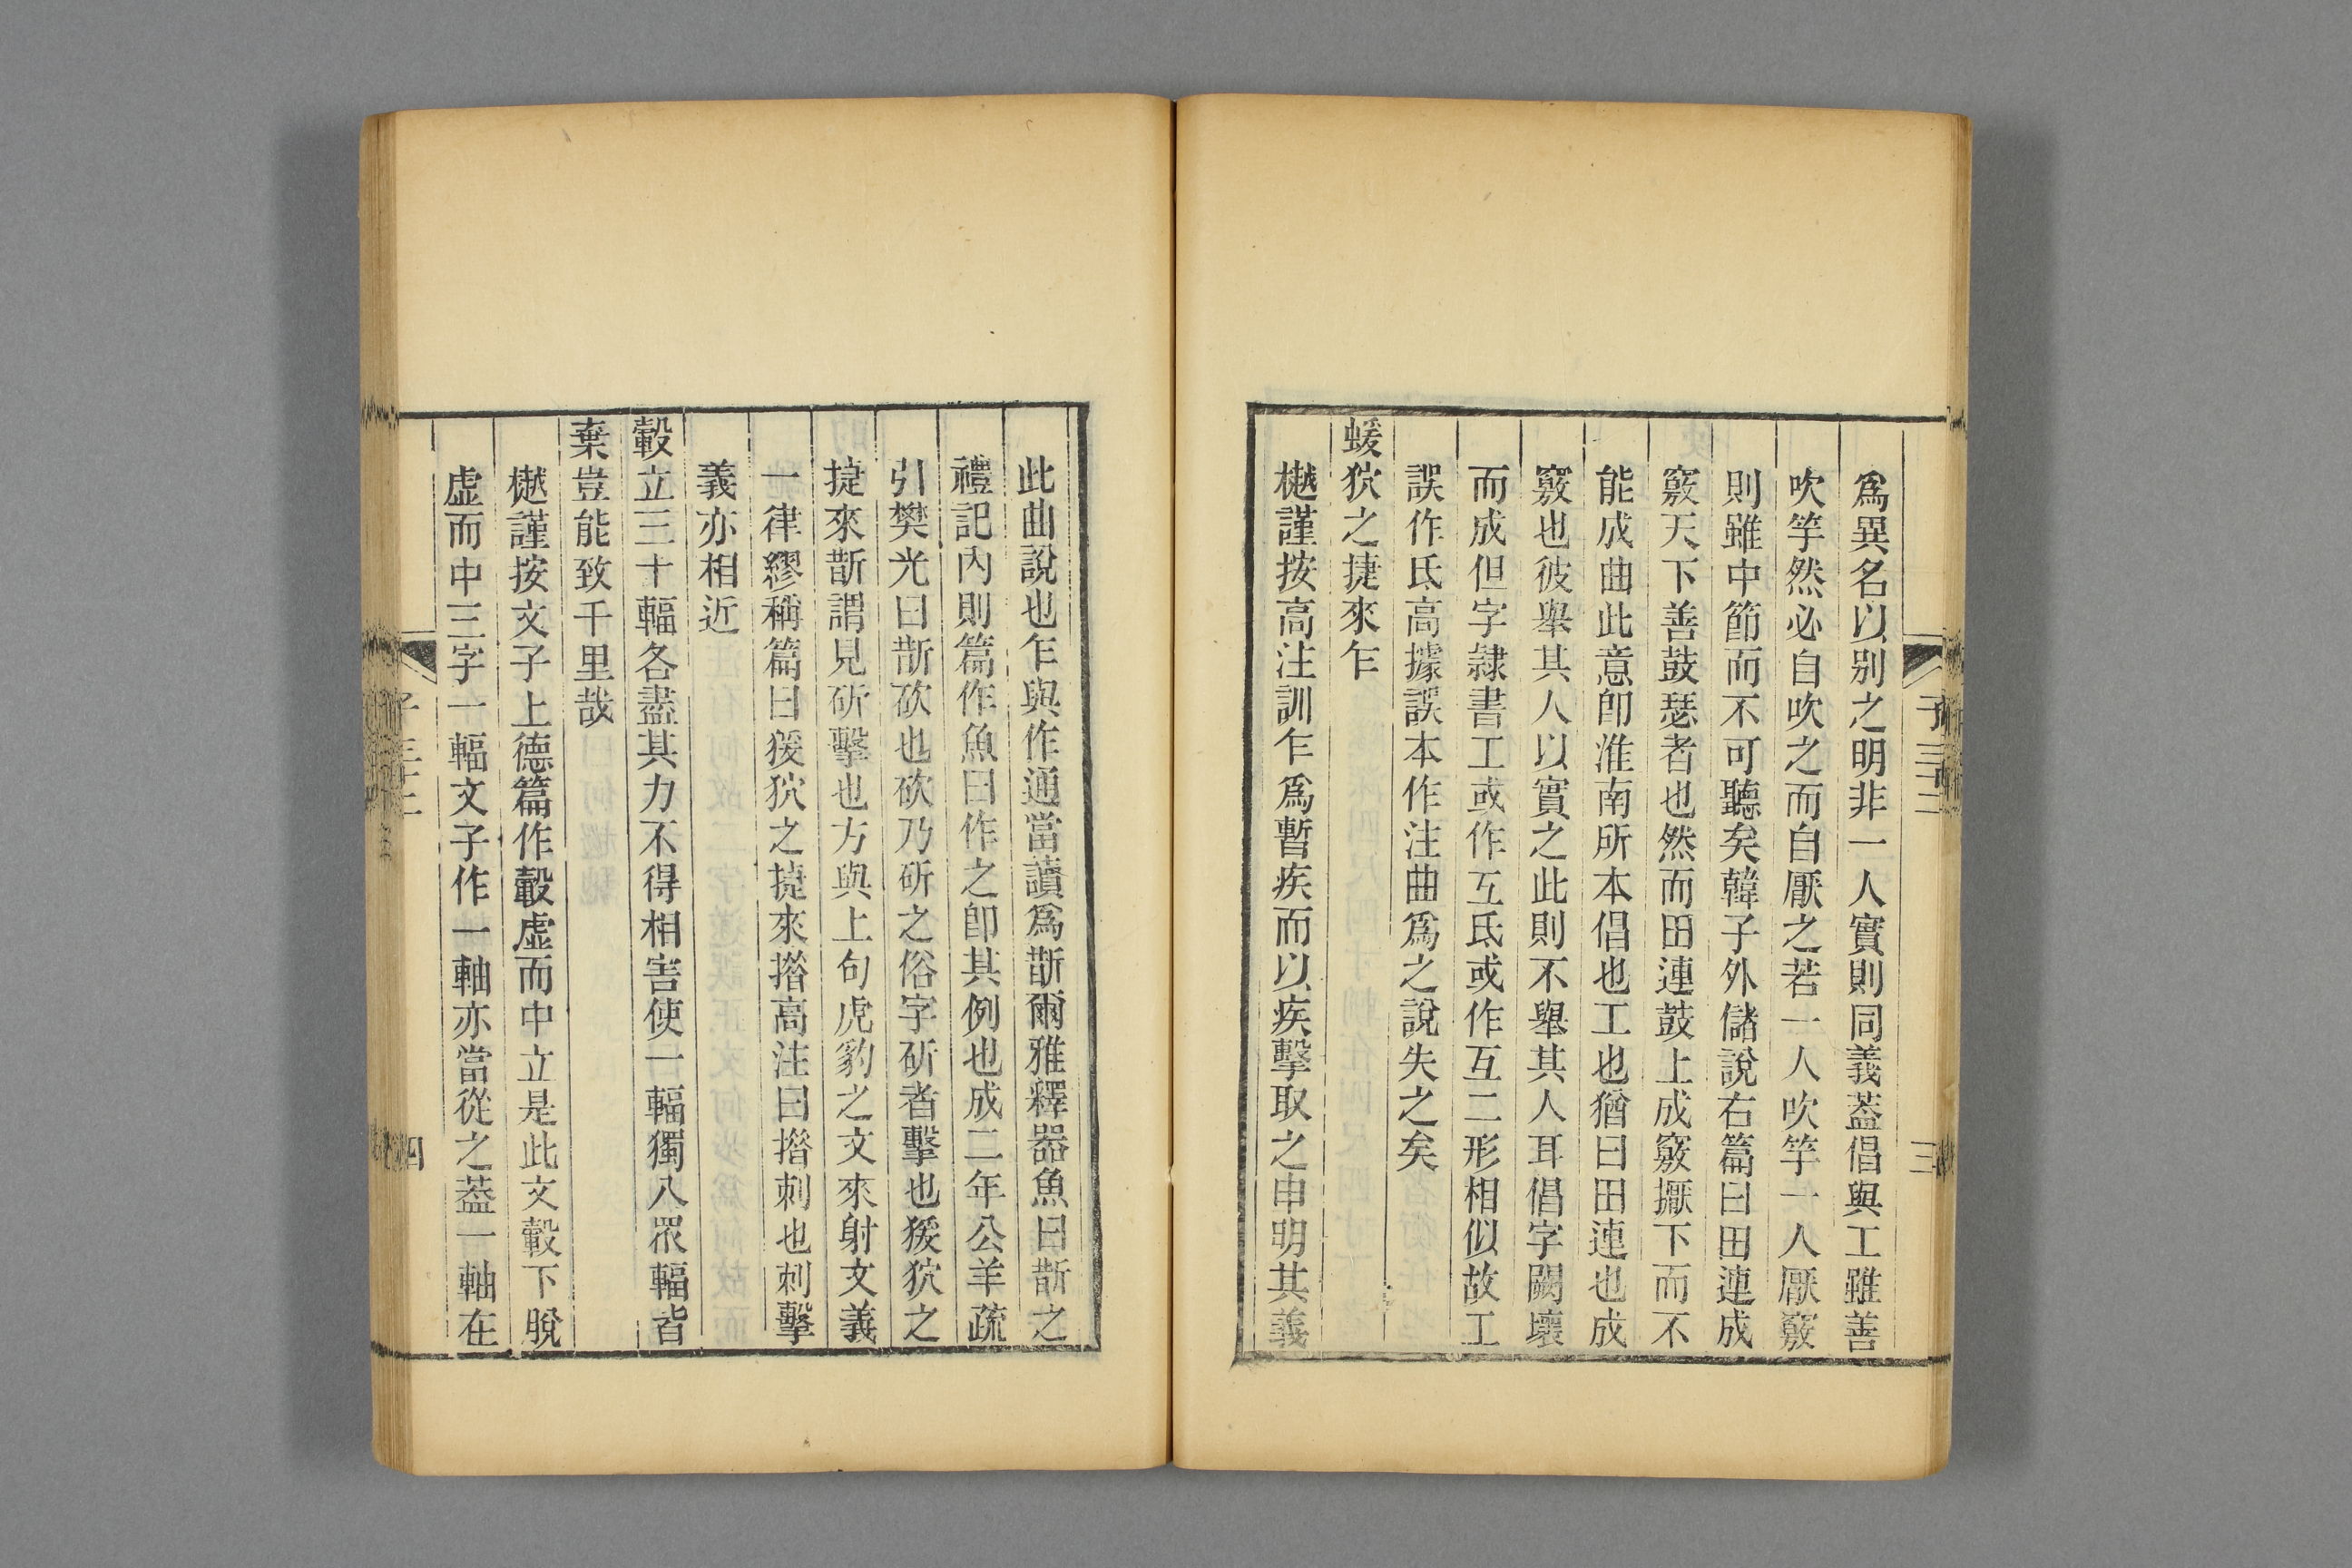 爲異名以別之明非一人實則同義葢倡與工雖善
吹竽然必自吹之而自厭之若一人吹竽一人厭竅
則雖中節而不可聽矣韓子外儲說右篇曰田連成
竅天下善鼓瑟者也然而田連鼓上成竅擫下而不
能成曲此意卽淮南所本倡也工也猶曰田連也成
竅也彼舉其人以實之此則不舉其人耳倡字闕壞
而成但字隸書工或作互氐或作互二形相似故工
誤作氐高據誤本作注曲爲之說失之矣
蝯狖之捷來乍
樾謹按高注訓乍爲暫疾而以疾擊取之申明其義
子三十二
三
此曲說也乍與作通當讀爲斮爾雅釋器魚曰斮之
禮記內則篇作魚曰作之卽其例也成二年公羊疏
引樊光曰斮砍也砍乃斫之俗字斫者擊也猨狖之
捷來斮謂見斫擊也方與上句虎豹之文來射文義
一律繆稱篇曰猨狖之捷來措高注曰措刺也刺擊
義亦相近
轂立三十輻各盡其力不得相害使一輻獨入眾輻皆
棄豈能致千里哉
樾謹按文子上德篇作轂虛而中立是此文轂下脫
虛而中三字一輻文子作一軸亦當從之葢一軸在
子三十二
四